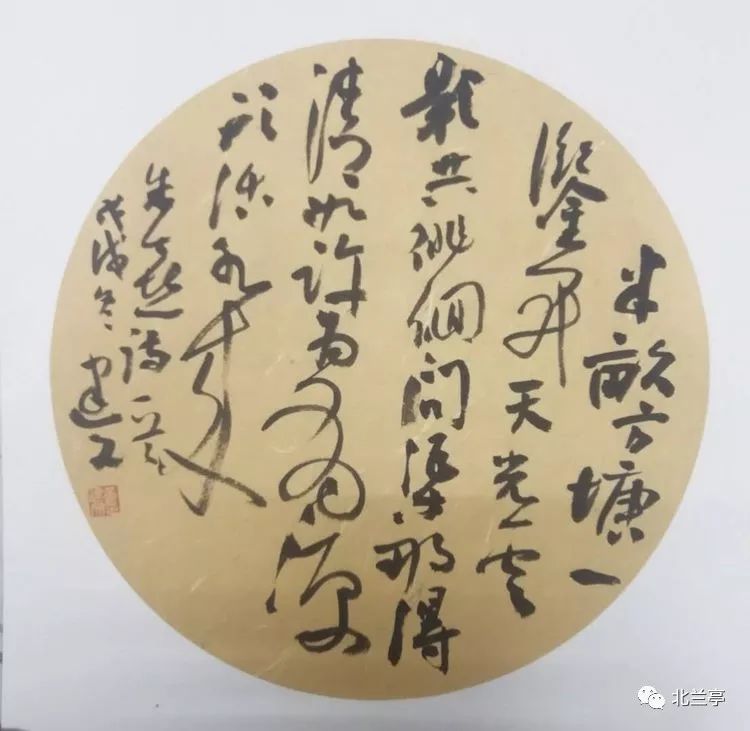 半畝方塘一
鑒開天光雲
影共徘徊問渠那得
清如許為有源
頭活水來
朱熹詩一首
戊戌冬 建
北兰亭